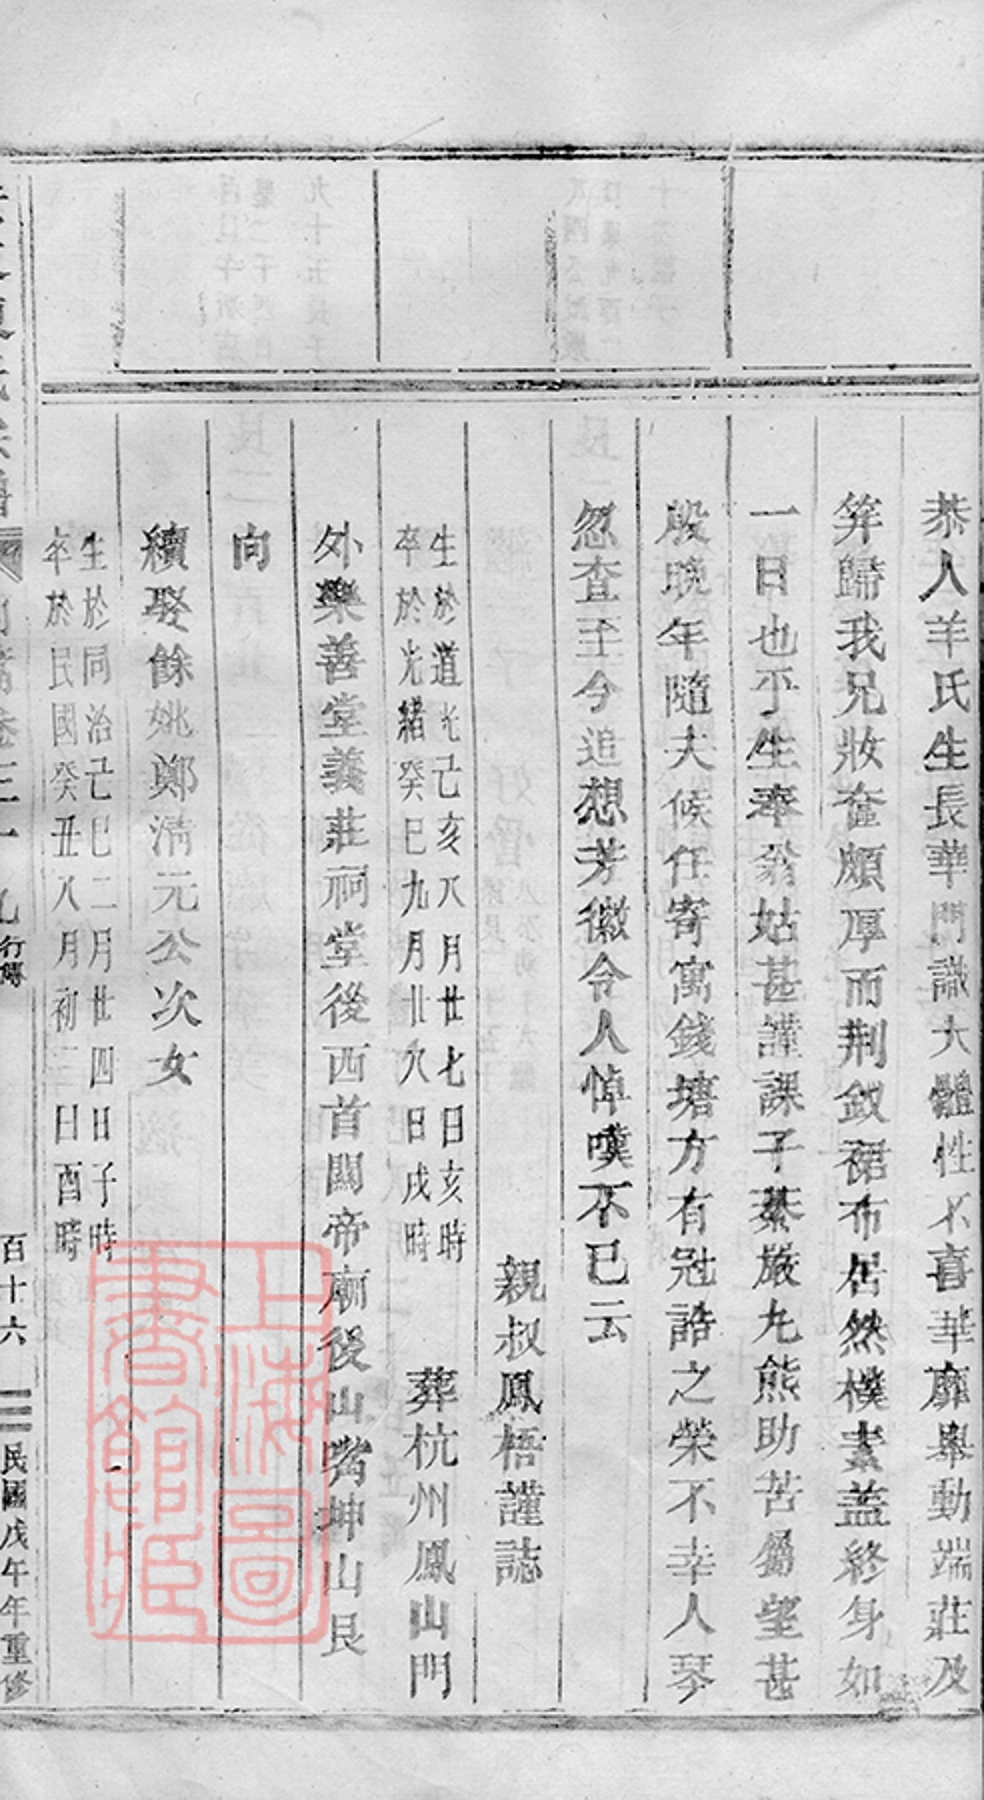 恭人羊氏生長華門識大體性不喜華靡舉動端莊及
笄歸我兄妝奩頗厚而荆釵裙布居然樸素蓋終身如
一日也于生奉翁姑甚謹課子綦嚴丸熊助苦屬望甚
殷晚年隨夫候任寄寓錢塘方有冠誥之榮不幸人琴
忽查至今追想芳徽令人悼嘆不已云
親叔鳳梧謹誌
生於道光己亥八月廿七日亥時
卒於光緒癸巳九月廿六日戌時
葬杭州鳳山門
外樂善堂義莊祠堂後西首關帝廟後山嘴坤山艮
向
續娶餘姚鄭清元公次女
生於同治己巳二月廿四日子時
卒於民國癸丑八月初三日酉時
氏宗譜
卷三十九
行傳
百十六
民國戊午年重修
上海圖書館藏